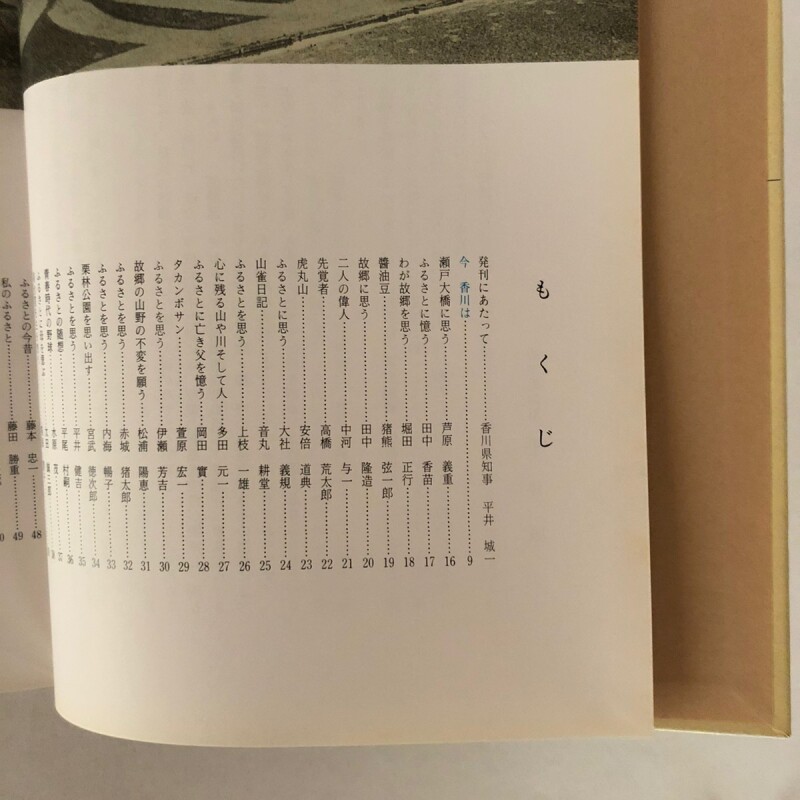 もくじ
発刊にあたって……………香川県知事 平井 城一
今 香川は……………9
瀬戸大橋に思う……………芦原 義重……………16
ふるさとに憶う……………田中 香苗……………17
わが故郷を思う……………堀田 正行……………18
醬油豆……………猪熊 弦一郎……………19
故郷に思う……………田中 隆造……………20
二人の偉人……………中河 与一……………21
先覚者……………高橋 荒太郎……………22
虎丸山……………安倍 道典……………23
ふるさとに思う……………大社 義規……………24
山雀日記……………音丸 耕堂……………25
ふるさとを思う……………上枝 一雄……………26
心に残る山や川そして人……………多田 元一……………27
ふるさとに亡き父を憶う……………岡田 實……………28
タカンボサン……………萱原 宏一……………29
ふるさとを思う……………伊瀬 芳吉……………30
故郷の山野の不変を願う……………松浦 陽恵……………31
ふるさとを思う……………赤城 猪太郎……………32
ふるさとを思う……………内海 暢子……………33
栗林公園を思い出す……………宮武 徳次郎……………34
ふるさとを思う……………平井 健吉……………35
ふるさとの随想……………平尾 村嗣……………36
青春時代の野球……………木原 茂……………37
ふるさとの今昔……………藤本 忠一……………48
私のふるさと……………藤田 勝重……………49